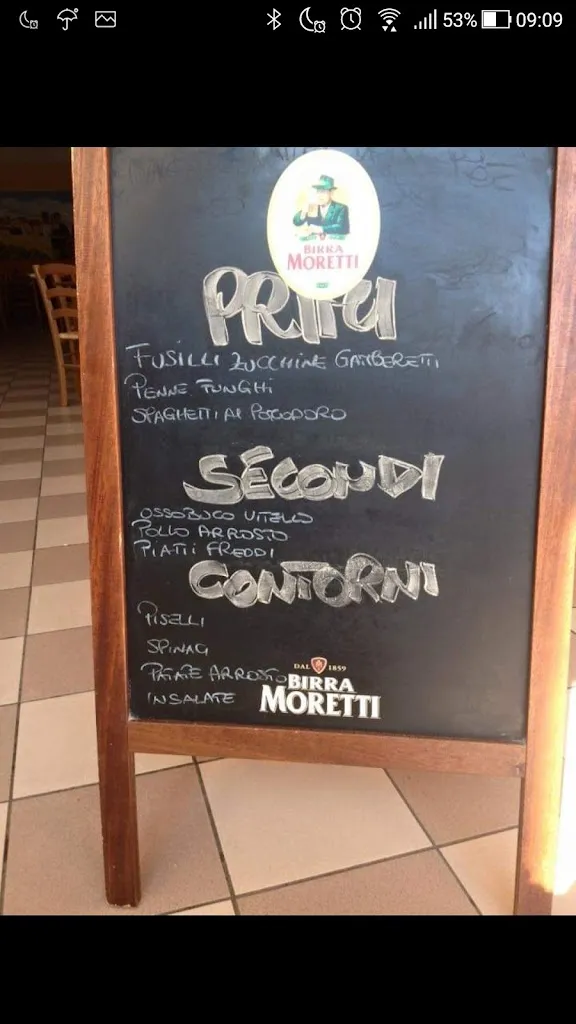 53% 09:09
BIRRA
MORETTI
PRIMI
FUSILLI ZUCCHINE GAMBERETTI
PENNE FUNGHI
SPAGHETTI AL POMODORO
SECONDI
OSSOBUCO VITELLO
POLLO ARROSTO
PIATTI FREDDI
CONTORNI
PISELLI
SPINACI
PATATE ARROSTO
INSALATE
DAL 1859
BIRRA
MORETTI